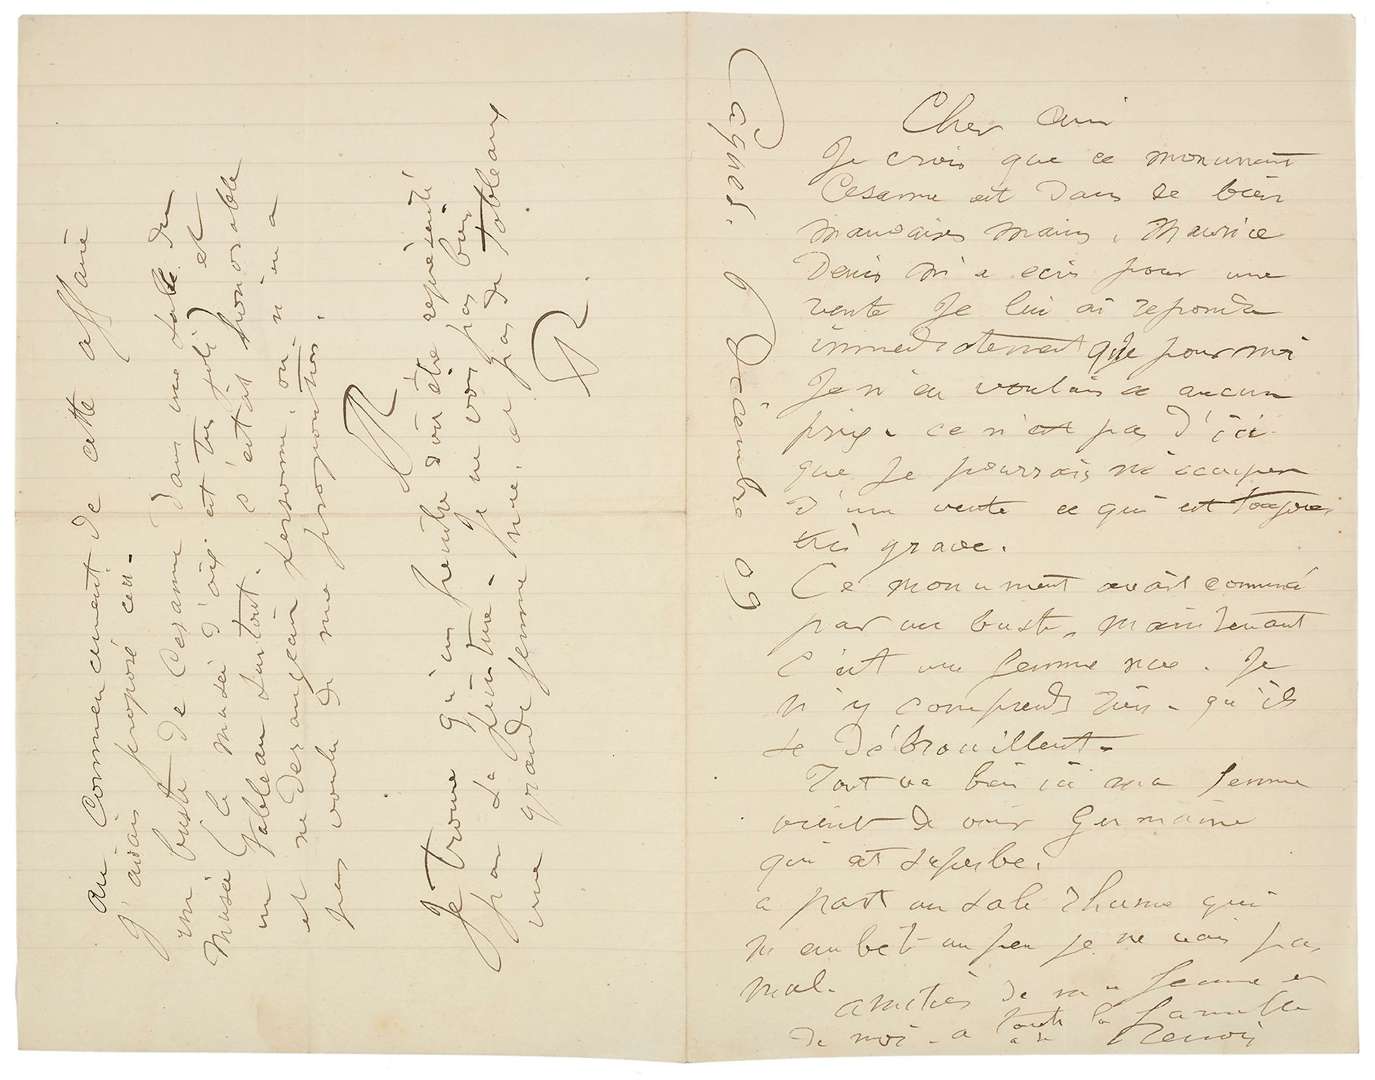 Cagnes. Décembre 09
Cher ami
Je crois que ce monument
Cesanne est dans de bien
mauvaises mains. Maurice
Denis m'a ecris pour une
vente Je lui ai repondu
immediatement que pour moi
Je n'en voulais a aucun
prix. ce n'est pas d'ici
que je pourrais m'occuper
d'une vente ce qui est toujours
très grave.
Ce monument avait commencé
par un buste, maintenant
c'est une femme nue. Je
n'y comprends rien - qu'ils
se débrouillent -
Tout va bien ici ma femme
vient de voir Germaine
qui est superbe.
a part un sale rhume qui
m'embete un peu je ne vais pas
mal.
amitiés de ma femme et
de moi - a toute la famille
a de Renoir
au commencement de cette affaire
J'avais proposé ceci -
un buste de Cesanne dans une salle du
Musée (le musée d'aix est très joli) et
un tableau surtout. c'était honorable
et ne derangeait personne, on n'en a
pas voulu de ma proposition.
R
Je trouve qu'un peintre doit être représenté
par sa peinture - Je ne vois pas bien
une grande femme nue, et pas de tableaux
R.